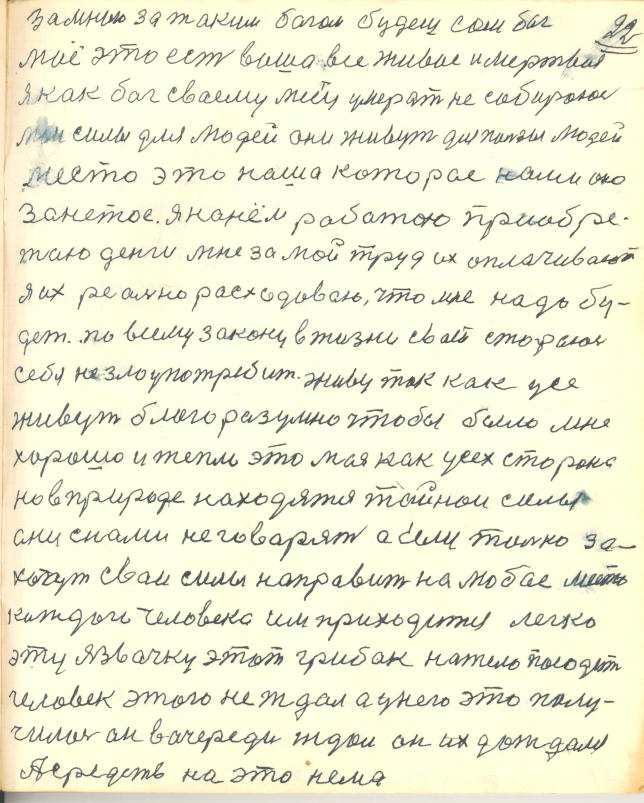 22
Замною за таким богом будеш сам бог
моё это ест ваша все живое и мертвое
я как бог сваему месту умерат не собираюс
мои силы для людей они живут для ползы людей
место это наша которае нами оно
занетое. я на нём работаю приобре-
таю денги мне за мой труд их оплачивают
я их реално расходоваю, что мне надо бу-
дет. по всему закону в жизни своей стораюс
себя не злоупотребит. живу так как усе
живут благоразумно чтобы было мне
хорошо и тепло это мая как усех сторона
но в природе находятся тайнои силы
они снами не говарят а если толко за-
хотут сваи силы направит на любое место
каждого человека им приходится легко
эту язвачку этот грибак на тело посодит
человек этого не ждал а унего это полу-
чилос он вачереди ждал он их дождался
А средств на это нема